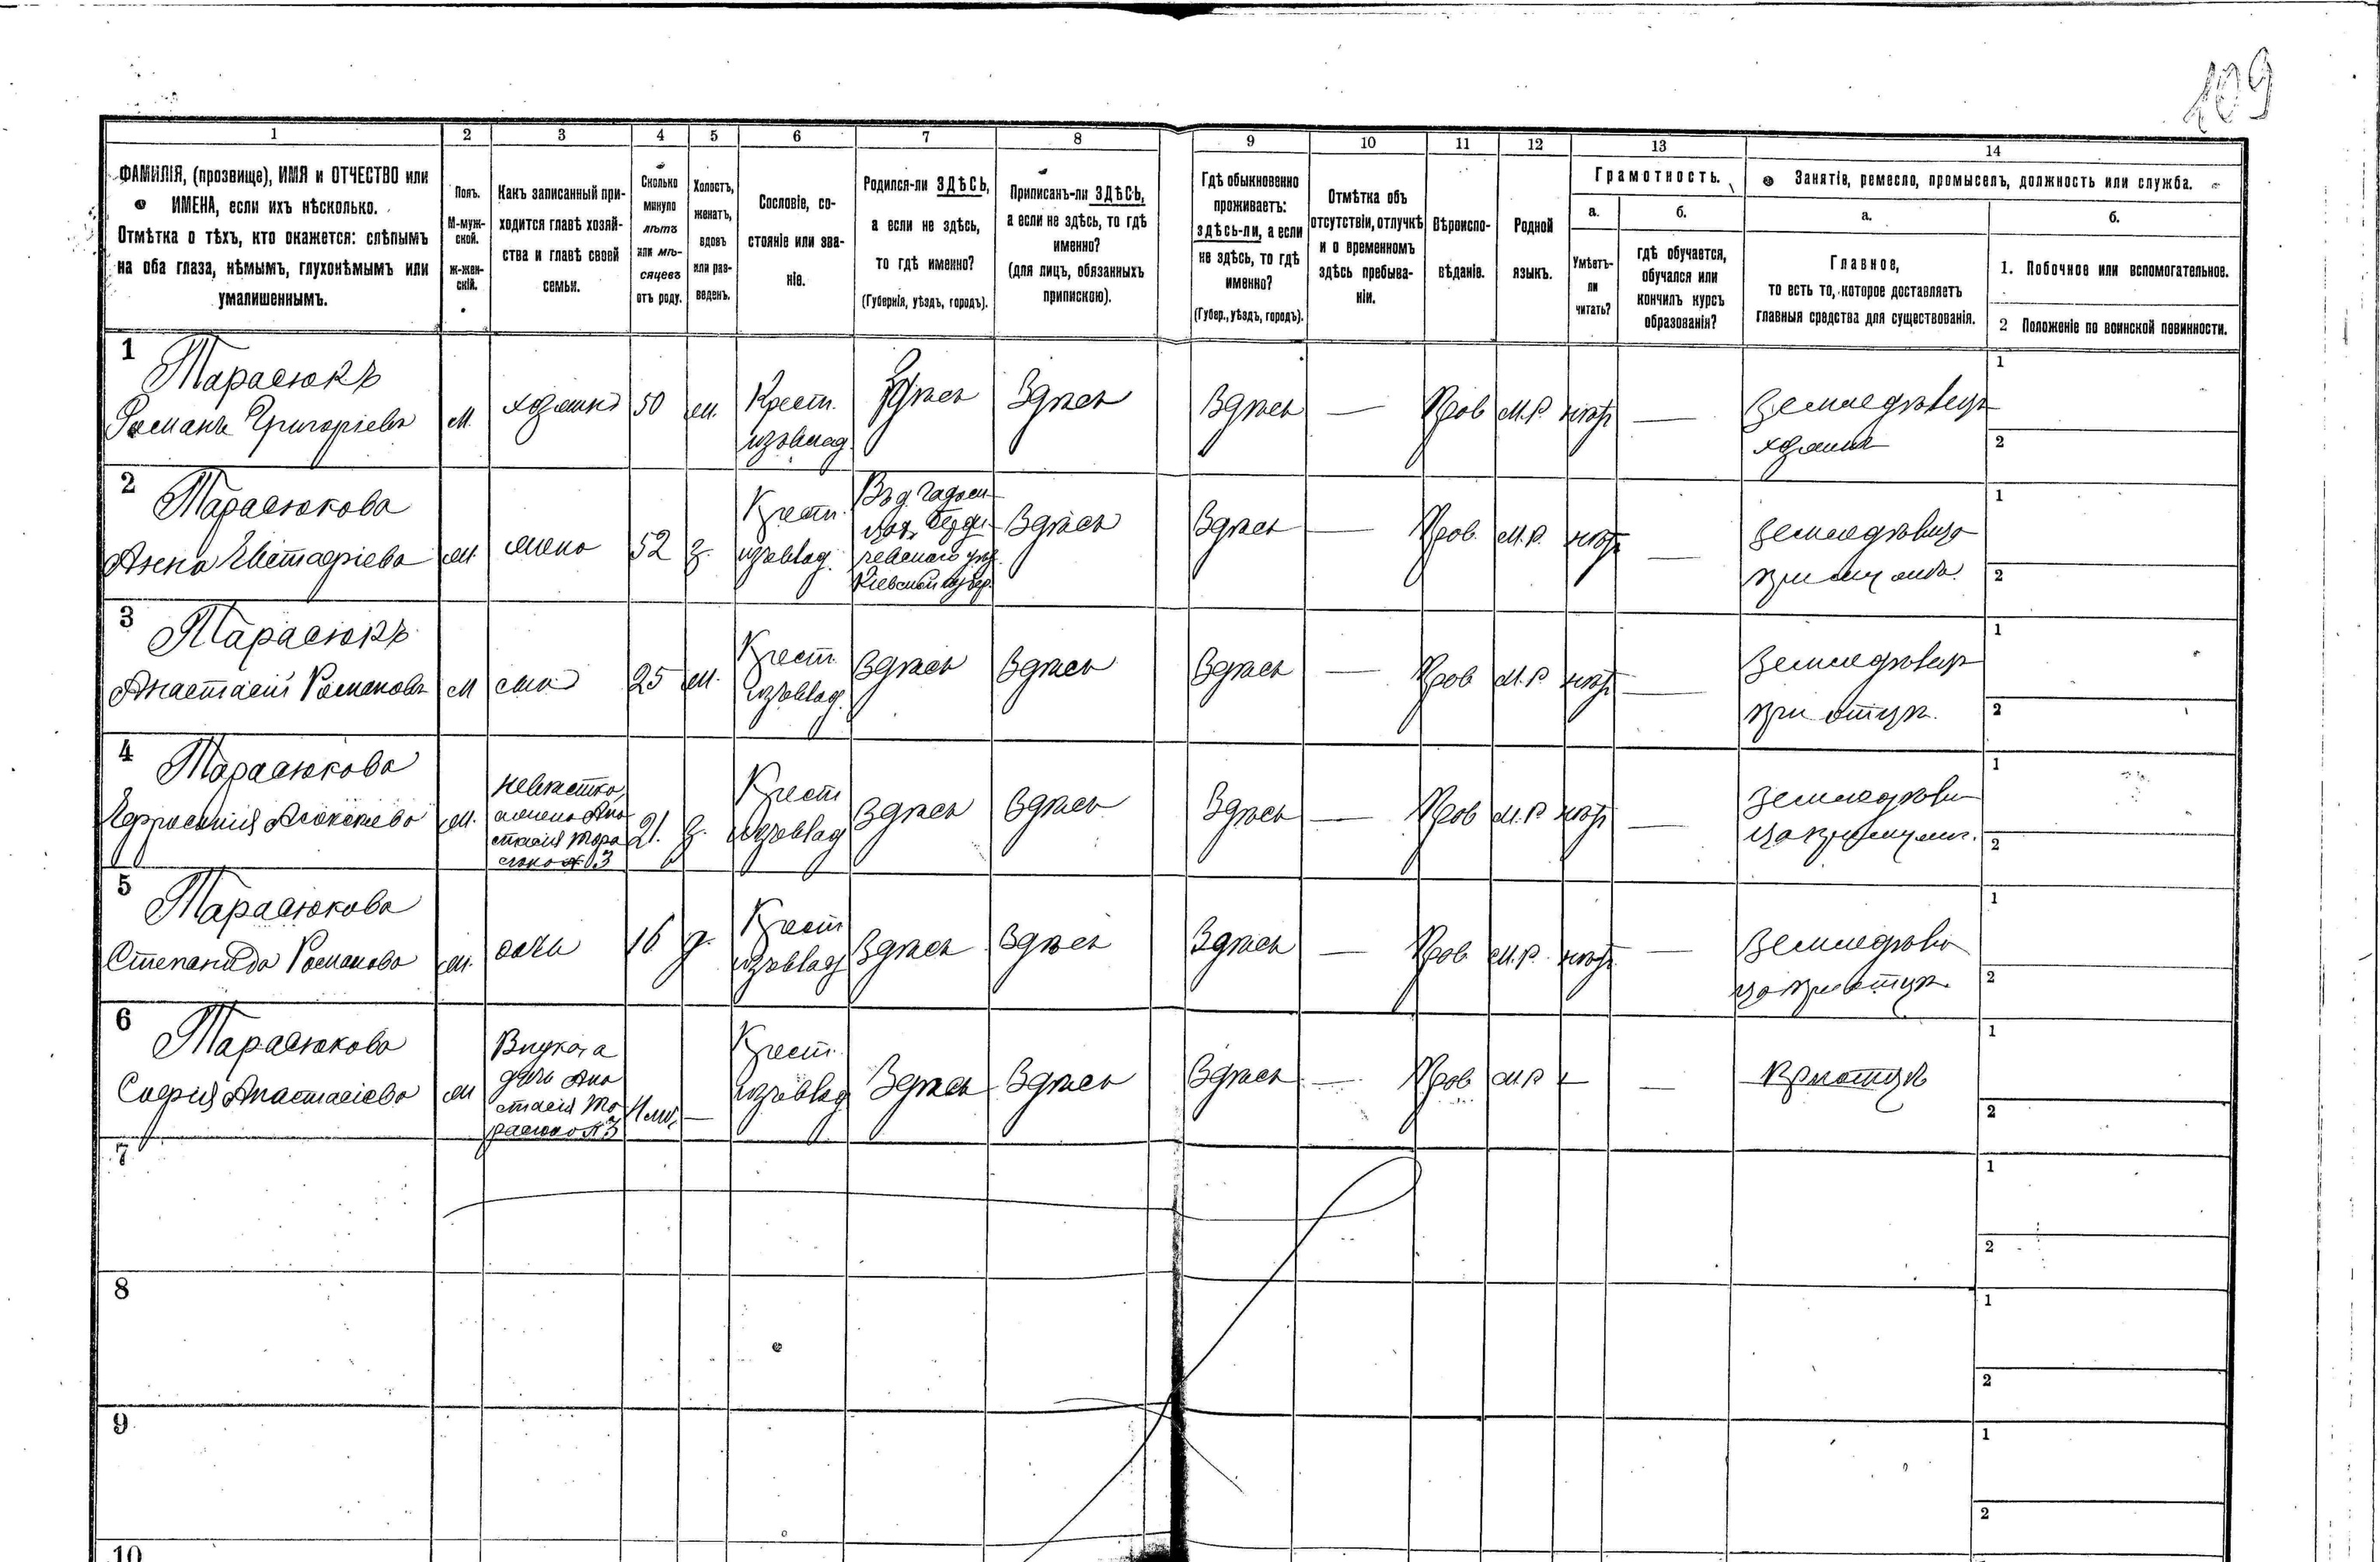 109
1 2 3 4 5 6 7 8 9 10 11 12 13 14
ФАМИЛІЯ, (прозвище), ИМЯ и ОТЧЕСТВО или
ИМЕНА, если ихъ нѣсколько.
Отмѣтка о тѣхъ, кто окажется: слѣпымъ
на оба глаза, нѣмымъ, глухонѣмымъ или
умалишеннымъ.
Полъ.
М-муж-
ской.
ж-жен-
скій.
Какъ записанный при-
ходится главѣ хозяй-
ства и главѣ своей
семьи.
Сколько
минуло
лѣтъ
или мѣ-
сяцевъ
отъ роду.
Холостъ,
женатъ,
вдовъ
или раз-
веденъ.
Сословіе, со-
стояніе или зва-
ніе.
Родился-ли ЗДѢСЬ,
а если не здѣсь,
то гдѣ именно?
(Губернія, уѣздъ, городъ).
Приписанъ-ли ЗДѢСЬ,
а если не здѣсь, то гдѣ
именно?
(для лицъ, обязанныхъ
припискою).
Гдѣ обыкновенно
проживаетъ:
здѣсь-ли, а если
не здѣсь, то гдѣ
именно?
(Губер., уѣздъ, городъ).
Отмѣтка объ
отсутствіи, отлучкѣ
и о временномъ
здѣсь пребыва-
ніи.
Вѣроиспо-
вѣданіе.
Родной
языкъ.
Грамотность.
а.
Умѣетъ-
ли
читать?
б.
гдѣ обучается,
обучался или
кончилъ курсъ
образованія?
Занятіе, ремесло, промыселъ, должность или служба.
а.
Главное,
то есть то, которое доставляетъ
главныя средства для существованія.
б.
1. Побочное или вспомогательное.
2 Положеніе по воинской повинности.
1
Тарасюкъ
Романъ Григоріевъ
м.
хозяинъ
50
ж.
Крест.
изъ влад.
Здѣсь
Здѣсь
Здѣсь
—
Прав
М.Р.
нѣтъ
—
Земледѣлецъ
хозяинъ
1
2
2
Тарасюкова
Анна Евстафіева
ж.
жена
52
з.
Крест.
изъ влад.
Берди-
чевскаго уѣз.
Кіевской губер.
Здѣсь
Здѣсь
—
Прав.
М.Р.
нѣтъ
—
Земледѣлица
при мужѣ.
1
2
3
Тарасюкъ
Анастасій Романовъ
м
сынъ
25
ж.
Крест.
изъ влад.
Здѣсь
Здѣсь
Здѣсь
—
Прав
М.Р
нѣтъ
—
Земледѣлецъ
при отцѣ.
1
2
4
Тарасюкова
ж.
невѣстка,
жена Ана
стасія Тара
сюка № 3
21.
з.
Крест
изъ влад
Здѣсь
Здѣсь
Здѣсь
—
Прав
М.Р
нѣтъ
—
Земледѣли
ца при муж.
1
2
5
Тарасюкова
Степанида Романова
ж.
дочь
16
д.
Крест
изъ влад
Здѣсь
Здѣсь
Здѣсь
—
Прав
М.Р.
нѣтъ
—
Земледѣли
ца при отцѣ.
1
2
6
Тарасюкова
Софія Анастасіева
ж
Внучка
дочь Ана
стасія Та
расюка № 3
—
Крест.
изъ влад
Здѣсь
Здѣсь
Здѣсь
—
Прав
М.Р
—
—
При отцѣ
1
2
7
1
2
8
1
2
9
1
2
10